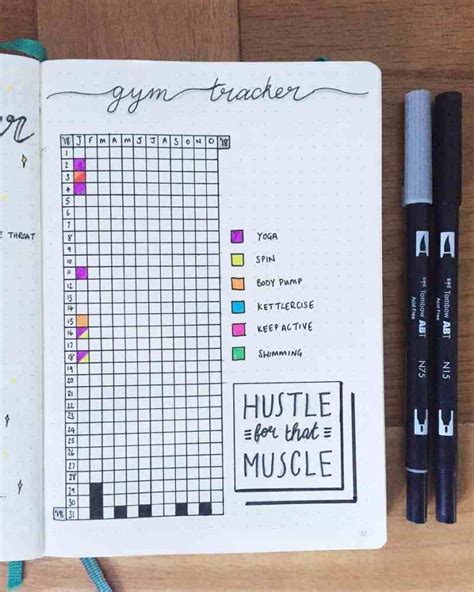 gym tracker
er
'18 J F M A M J J A S O N D '18
1
2
3
4
5
6
7
8
9
10
11
12
13
14
15
16
17
18
19
20
21
22
23
24
25
26
27
28
29
30
'18 31
E THROAT
YOGA
SPIN
BODY PUMP
KETTLERCISE
KEEP ACTIVE
SWIMMING
HUSTLE
for that
MUSCLE
Tombow ABT
Acid Free
N75
Tombow ABT
Acid Free
N15